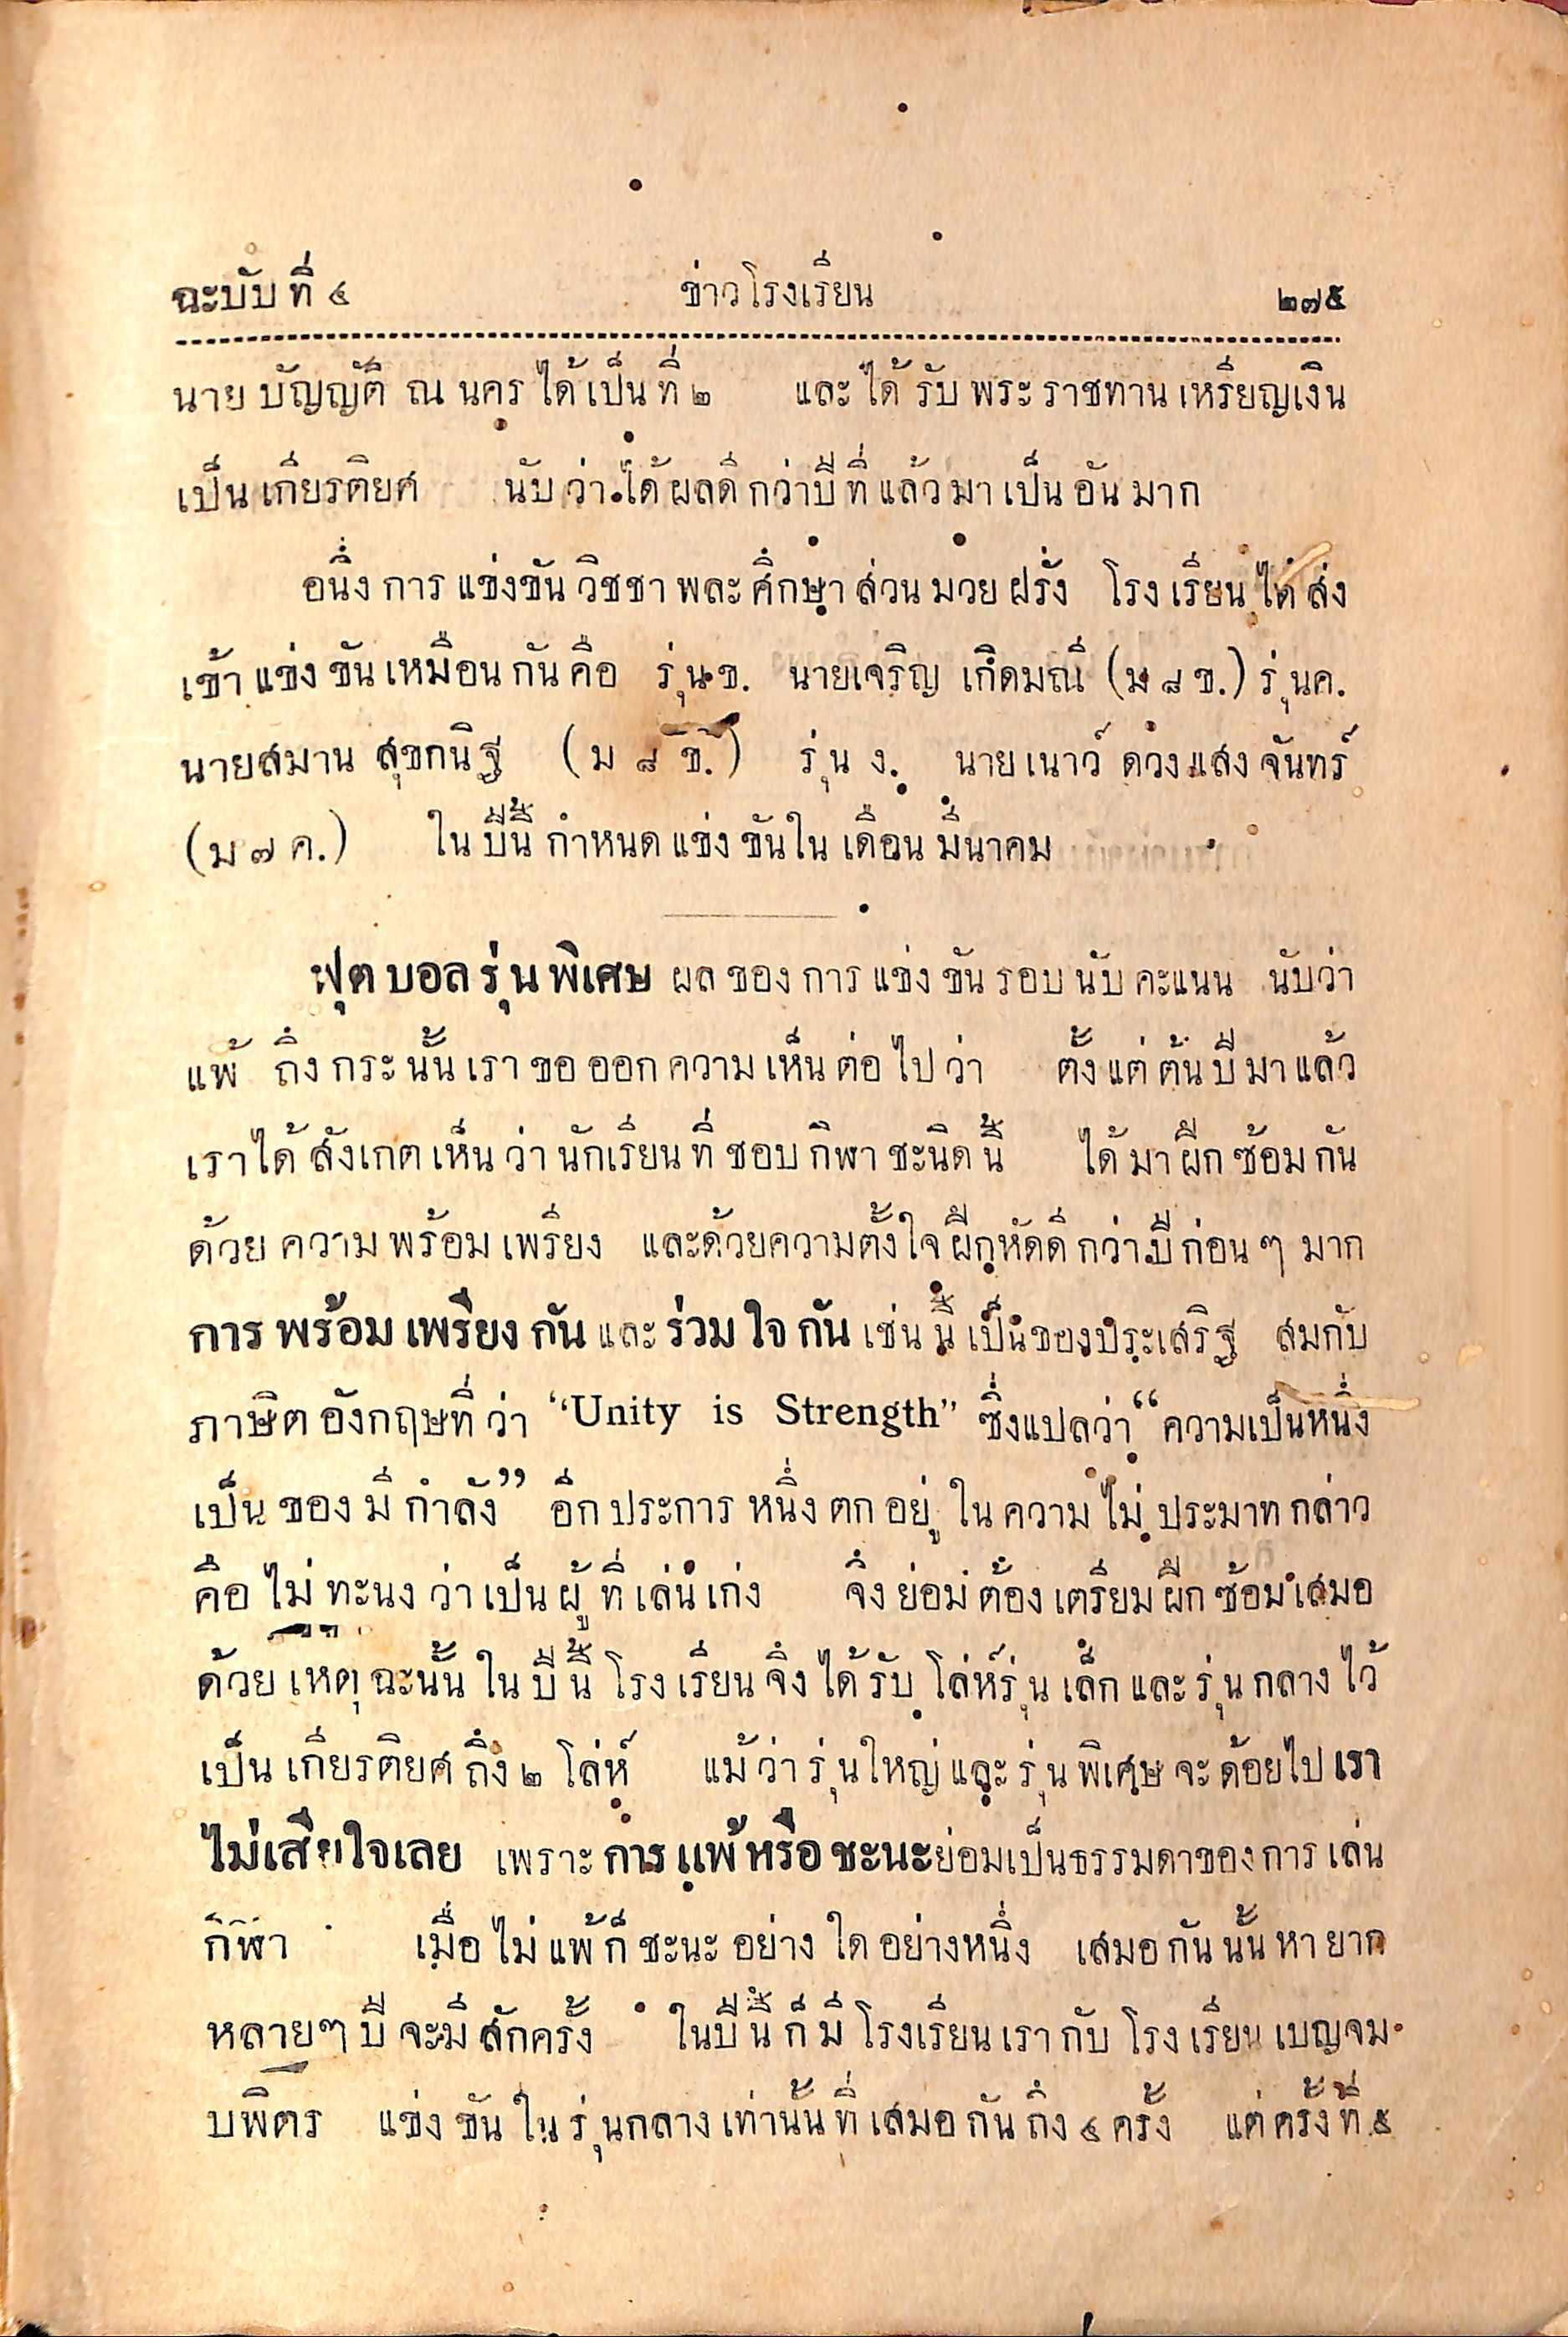 ฉะบับที่ ๔ ข่าวโรงเรียน ๒๗๕
นายบัญญัติ ณ นคร ได้เป็นที่ ๒ และได้รับพระราชทานเหรียญเงิน
เป็นเกียรติยศ นับว่าได้ผลดีกว่าปีที่แล้วมาเป็นอันมาก
อนึ่งการแข่งขันวิชชาพละศึกษาส่วนมวยฝรั่ง โรงเรียนได้ส่ง
เข้าแข่งขันเหมือนกันคือ รุ่น ข. นายเจริญ เกิดมณี (ม ๘ ข.) รุ่น ค.
นายสมาน สุขกนิฐ (ม ๘ ข.) รุ่น ง. นายเนาว์ ดวงแสงจันทร์
(ม ๗ ค.) ในปีนี้กำหนดแข่งขันในเดือนมีนาคม
ฟุตบอลรุ่นพิเศษ ผลของการแข่งขันรอบนับคะแนน นับว่า
แพ้ ถึงกระนั้นเราขอออกความเห็นต่อไปว่า ตั้งแต่ต้นปีมาแล้ว
เราได้สังเกตเห็นว่านักเรียนที่ชอบกิฬาชะนิดนี้ ได้มาฝึกซ้อมกัน
ด้วยความพร้อมเพรียง และด้วยความตั้งใจฝึกหัดดีกว่าปีก่อนๆ มาก
การพร้อมเพรียงกันและร่วมใจกันเช่นนี้เป็นของประเสริฐ สมกับ
ภาษิตอังกฤษที่ว่า “Unity is Strength” ซึ่งแปลว่า “ความเป็นหนึ่ง
เป็นของมีกำลัง” อีกประการหนึ่งตกอยู่ในความไม่ประมาทกล่าว
คือไม่ทะนงว่าเป็นผู้ที่เล่นเก่ง จึงย่อมต้องเตรียมฝึกซ้อมเสมอ
ด้วยเหตุฉะนั้นในปีนี้โรงเรียนจึงได้รับโล่ห์รุ่นเล็กและรุ่นกลางไว้
เป็นเกียรติยศถึง ๒ โล่ห์ แม้ว่ารุ่นใหญ่และรุ่นพิเศษจะด้อยไปเรา
ไม่เสียใจเลย เพราะการแพ้หรือชะนะย่อมเป็นธรรมดาของการเล่น
กิฬา เมื่อไม่แพ้ก็ชะนะอย่างใดอย่างหนึ่ง เสมอกันนั้นหายาก
หลายๆปีจะมีสักครั้ง ในปีนี้ก็มีโรงเรียนเรากับโรงเรียนเบญจม
บพิตร แข่งขันในรุ่นกลางเท่านั้นที่เสมอกันถึง ๔ ครั้ง แต่ครั้งที่ ๕